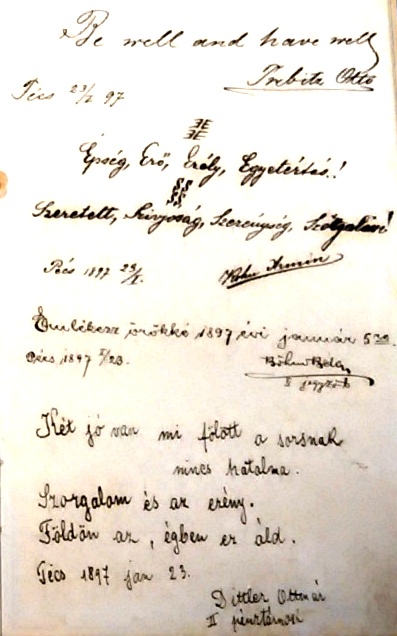 Be well and have well
Trebitz Ottó
Pécs 23/I 97
Épség, Erő, Erély, Egyetértés.!
Szeretett, Szívjóság, Szerénység, Szolgálává!
Pécs 1897 23/I.
Kohn Ármin
Emlékezz örökké 1897 évi január
Pécs 1897 I/23.
Böhm Béla
Két jó van mi fölött a sorsnak
nincs hatalma.
Szorgalom és az erény.
Földön az, égben ez áld.
Pécs 1897 jan 23.
Dittler Ottmár
II pénztárnok